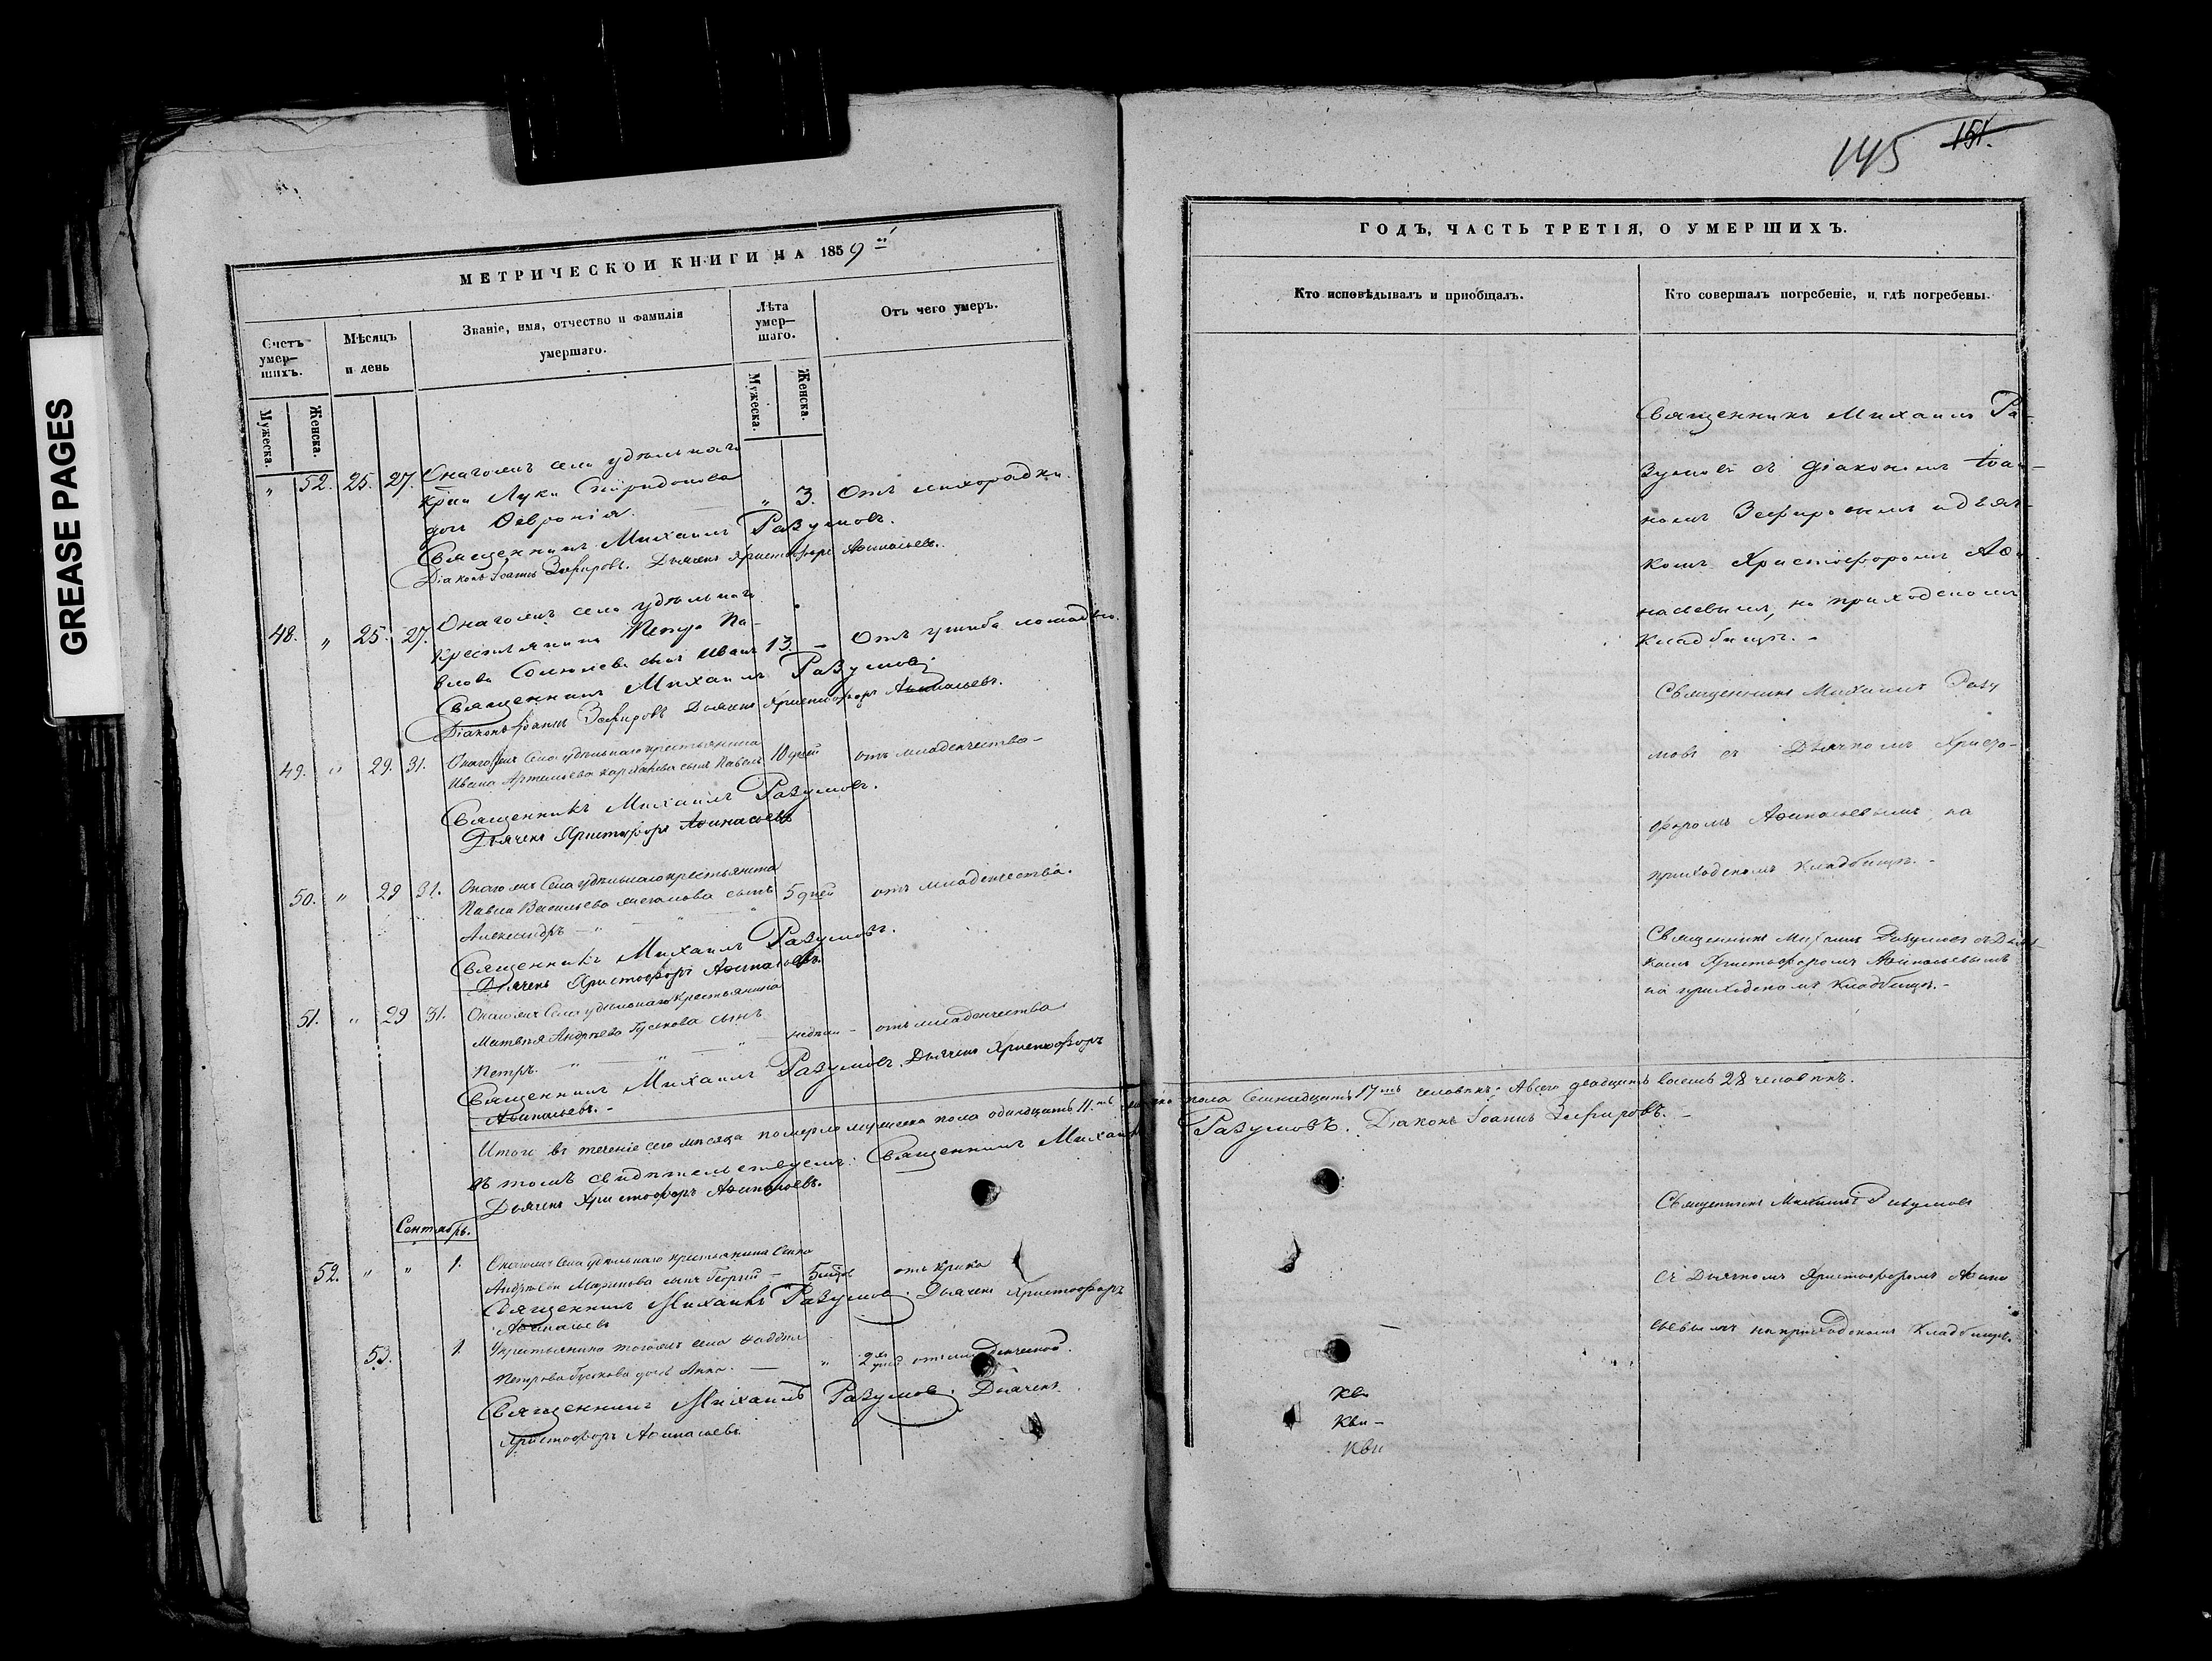 GREASE PAGES
МЕТРИЧЕСКОЙ КНИГИ НА 1859й
Счетъ умер-
шихъ.
Мѣсяцъ
и день
Званіе, имя, отчество и фамилія
умершаго.
Лѣта
умер-
шаго.
Отъ чего умеръ.
Мужеска.
Женска.
Мужеска.
Женска.
" 52. 25. 27. Онагожъ села удѣльнаго
кр̃на Луки Спиридонова " 3. Отъ лихорадки.
дочь Ѳевронія.
Священникъ Михаилъ Разумовъ.
Діаконъ Іоаннъ Зефировъ. Дьячекъ Христофоръ Аѳанасьевъ.
48. " 25. 27. Онагожъ села удѣльнаго
крестьянина Петра Па- 13. – Отъ ушиба лошадью.
влова сынъ Иванъ
Священникъ Михаилъ Разумовъ
Діаконъ Іоаннъ Зефировъ Дьячекъ Христофоръ Аѳанасьевъ.
49. " 29. 31. Онагожъ Села удѣльнаго крестьянина
Ивана Артемьева сынъ Павелъ 10 дней отъ младенчества –
Священникъ Михаилъ Разумовъ.
Дьячекъ Христофоръ Аѳанасьевъ
50. " 29 31. Онагожъ Села удѣльнаго крестьянина
Павла Васильева сынъ 5 дней отъ младенчества.
Александръ – "
Священникъ Михаилъ Разумовъ.
Дьячекъ Христофоръ Аѳанасьевъ.
51. " 29 31. Онагожъ Села удѣльнаго крестьянина
Матвѣя Андрѣева Гуськова сынъ
Петръ. – " недѣли – отъ младенчества
Священникъ Михаилъ Разумовъ. Дьячекъ Христофоръ
Аѳанасьевъ. –
Итого въ теченіе сего мѣсяца померло мужеска пола одинадцать 11.ть женска пола Семнадцать 17ть человѣкъ, А всего двадцать восемь 28 человѣкъ.
Въ томъ свидѣтельствуемъ: Священникъ Михаилъ Разумовъ. Діаконъ Іоаннъ Зефировъ. –
Дьячекъ Христофоръ Аѳанасьевъ.
Сентябрь.
52. " " 1. Онагожъ Села удѣльнаго крестьянина
Андрѣева сынъ Георгій – 5 отъ крика
Священникъ Михаилъ Разумовъ. Дьячекъ Христофоръ
Аѳанасьевъ
53. 1. крестьянина тогожъ села
Петрова Гуськова дочь Анна. – " 2хъ отъ младенческой.
Священникъ Михаилъ Разумовъ. Дьячекъ
Христофоръ Аѳанасьевъ.
145 151.
ГОДЪ, ЧАСТЬ ТРЕТІЯ, О УМЕРШИХЪ.
Кто исповѣдывалъ и пріобщалъ.
Кто совершалъ погребеніе, и гдѣ погребены.
Священникъ Михаилъ Ра-
зумовъ съ діакономъ Іоан-
номъ Зефировымъ и дьяч-
комъ Христофоромъ Аѳа-
насьевымъ, на приходскомъ
кладбищѣ. –
Священникъ Михаилъ Разу
мовъ съ Дьячкомъ Христо-
форомъ Аѳанасьевымъ, на
приходскомъ Кладбищѣ. –
Священникъ Михаилъ Разумовъ съ Дьяч-
комъ Христофоромъ Аѳанасьевымъ
на приходскомъ Кладбищѣ. –
Священникъ Михаилъ Разумовъ
съ Дьячкомъ Христофоромъ Аѳана
сьевымъ на приходскомъ Кладбищѣ.